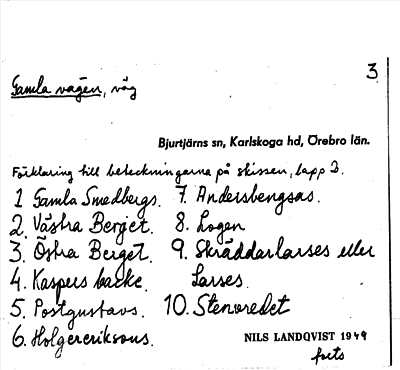 3
Gamla vägen, väg
Bjurtjärns sn, Karlskoga hd, Örebro län.
Förklaring till beteckningarna på skissen, lapp 2.
1 Gamla Smedbergs. 7. Andersbengsas.
2. Västra Berget. 8. Logen
3. Östra Berget. 9. Skräddarlarses eller
4. Kaspers backe. Larses.
5. Postgustavs. 10. Stenvredet
6. Holgereriksons.
NILS LANDQVIST 1949
forts